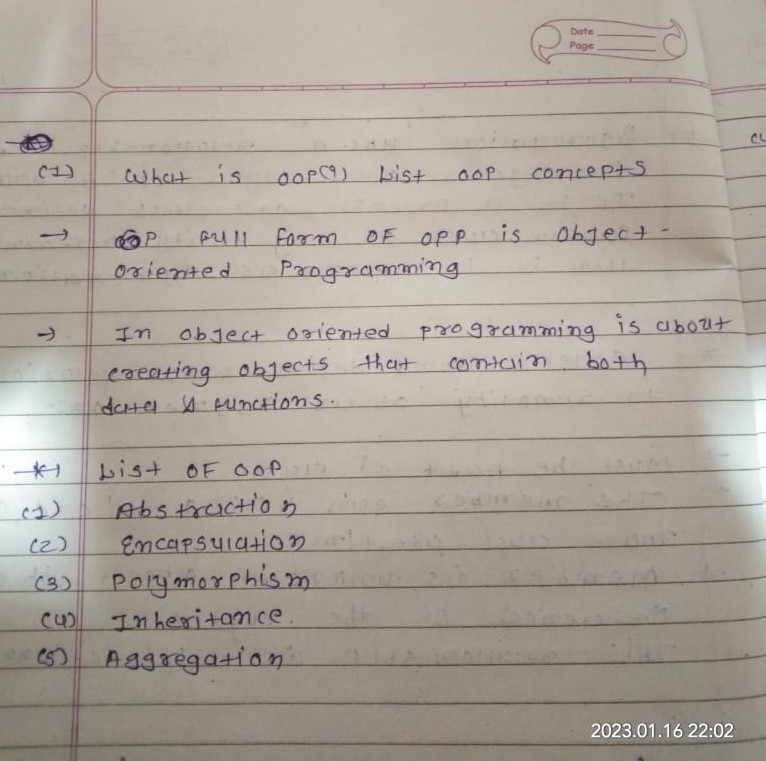 Date
Page
(1) What is OOP(?) List OOP concepts
→ P Full form OF OPP is Object-
oriented Programming
→ In object oriented programming is about
creating objects that contain both
data & functions.
* List OF OOP
(1) Abstraction
(2) Encapsulation
(3) Polymorphism
(4) Inheritance.
(5) Aggregation
2023.01.16 22:02